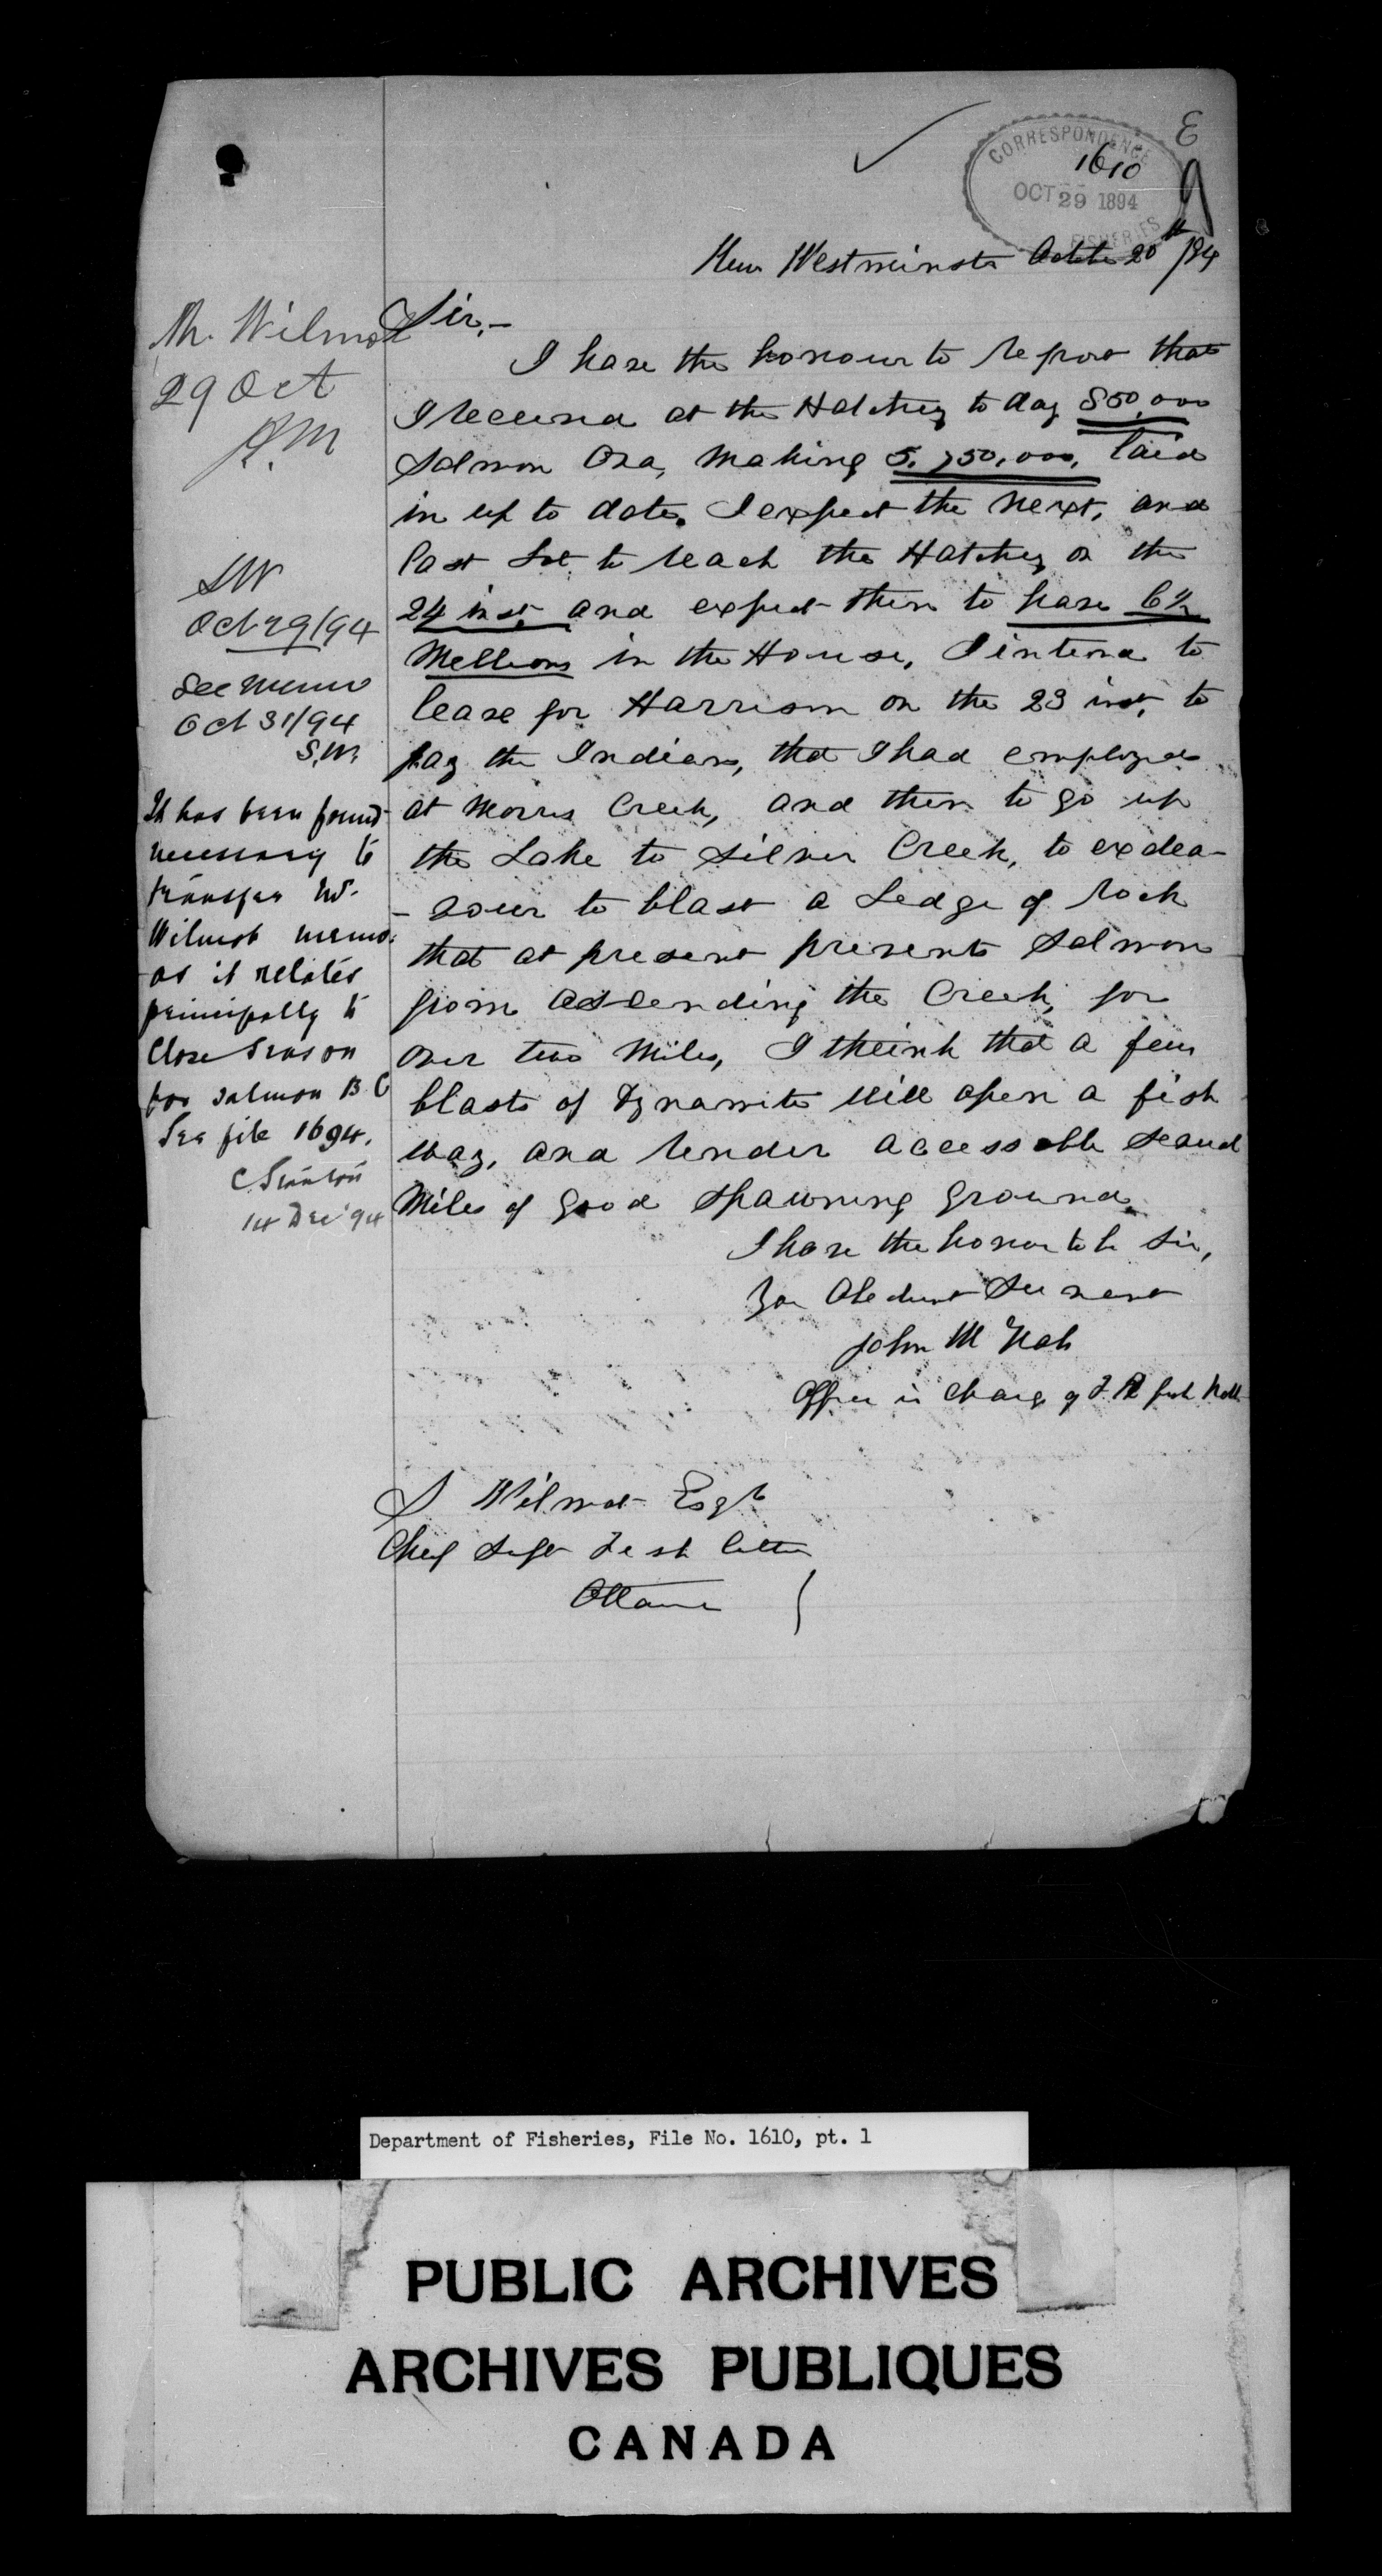 E
CORRESPONDENCE
1610
OCT 29 1894
FISHERIES
New Westminster Octbr 20th /94
Sir,-
I have the honour to report that
I received at the Hatchery to day 850,000
Salmon Ova, Making 5,750,000, laid
in up to date. I expect the next, and
last lot, to reach the Hatchery on the
24 inst, and expect then to have 6½
Millions in the House, I intend to
leave for Harrison on the 23 inst, to
pay the Indians, that I had employed
at Morris Creek, and then to go up
the Lake to Silver Creek, to exdea-
-vour to blast a Ledge of rock
that at present prevents Salmon
from ascending the Creek, for
over two Miles, I think that a few
blasts of Dynamite will open a fish
way, and render accessable several
Miles of good Spawning Ground.
I have the honor to be Sir,
Your Obedient Servant
John M
Officer in Charge of F R fish Hatch
S Wilmot Esqr
Chief Supt Fish Culture
Ottawa
Mr. Wilmot
29 Oct
SW
Oct 29/94
See Memo
Oct 31/94
S.W.
It has been found
necessary to
transfer Mr.
Wilmot memo.
as it relates
principally to
Close Season
for salmon B C
See file 1694.
C Stanton
14 Dec '94
Department of Fisheries, File No. 1610, pt. 1
PUBLIC ARCHIVES
ARCHIVES PUBLIQUES
CANADA